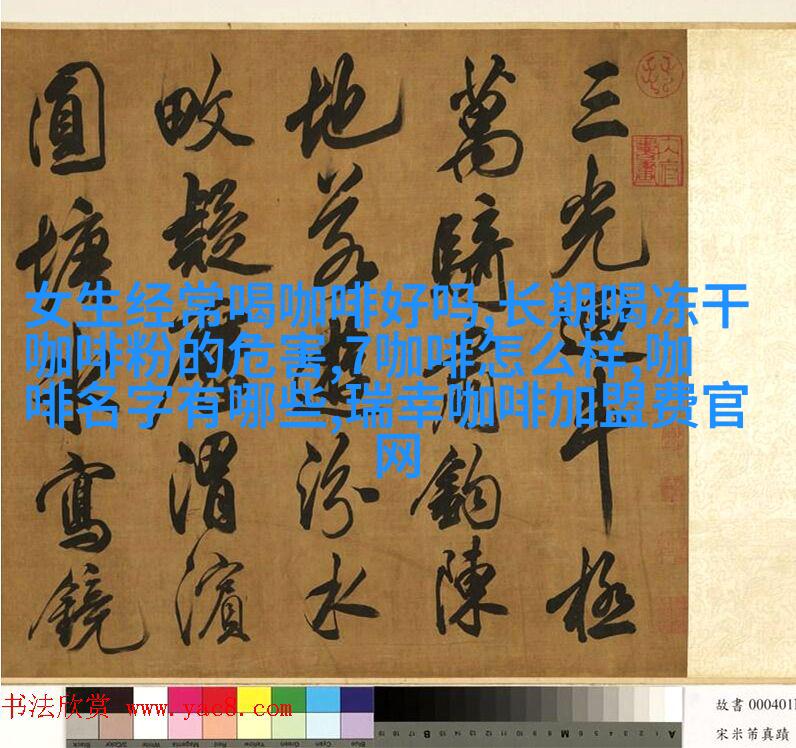 三光斗極
萬騎鈎陳
地若遊汾水
畋疑渭濱
圓塘寫鏡
女生经常喝咖啡好吗,长期喝冻干
咖啡粉的危害,7咖啡怎么样,咖
啡名字有哪些,瑞幸咖啡加盟费官
网
书法欣赏 www.yac8.com
故書 000401
宋米芾真蹟